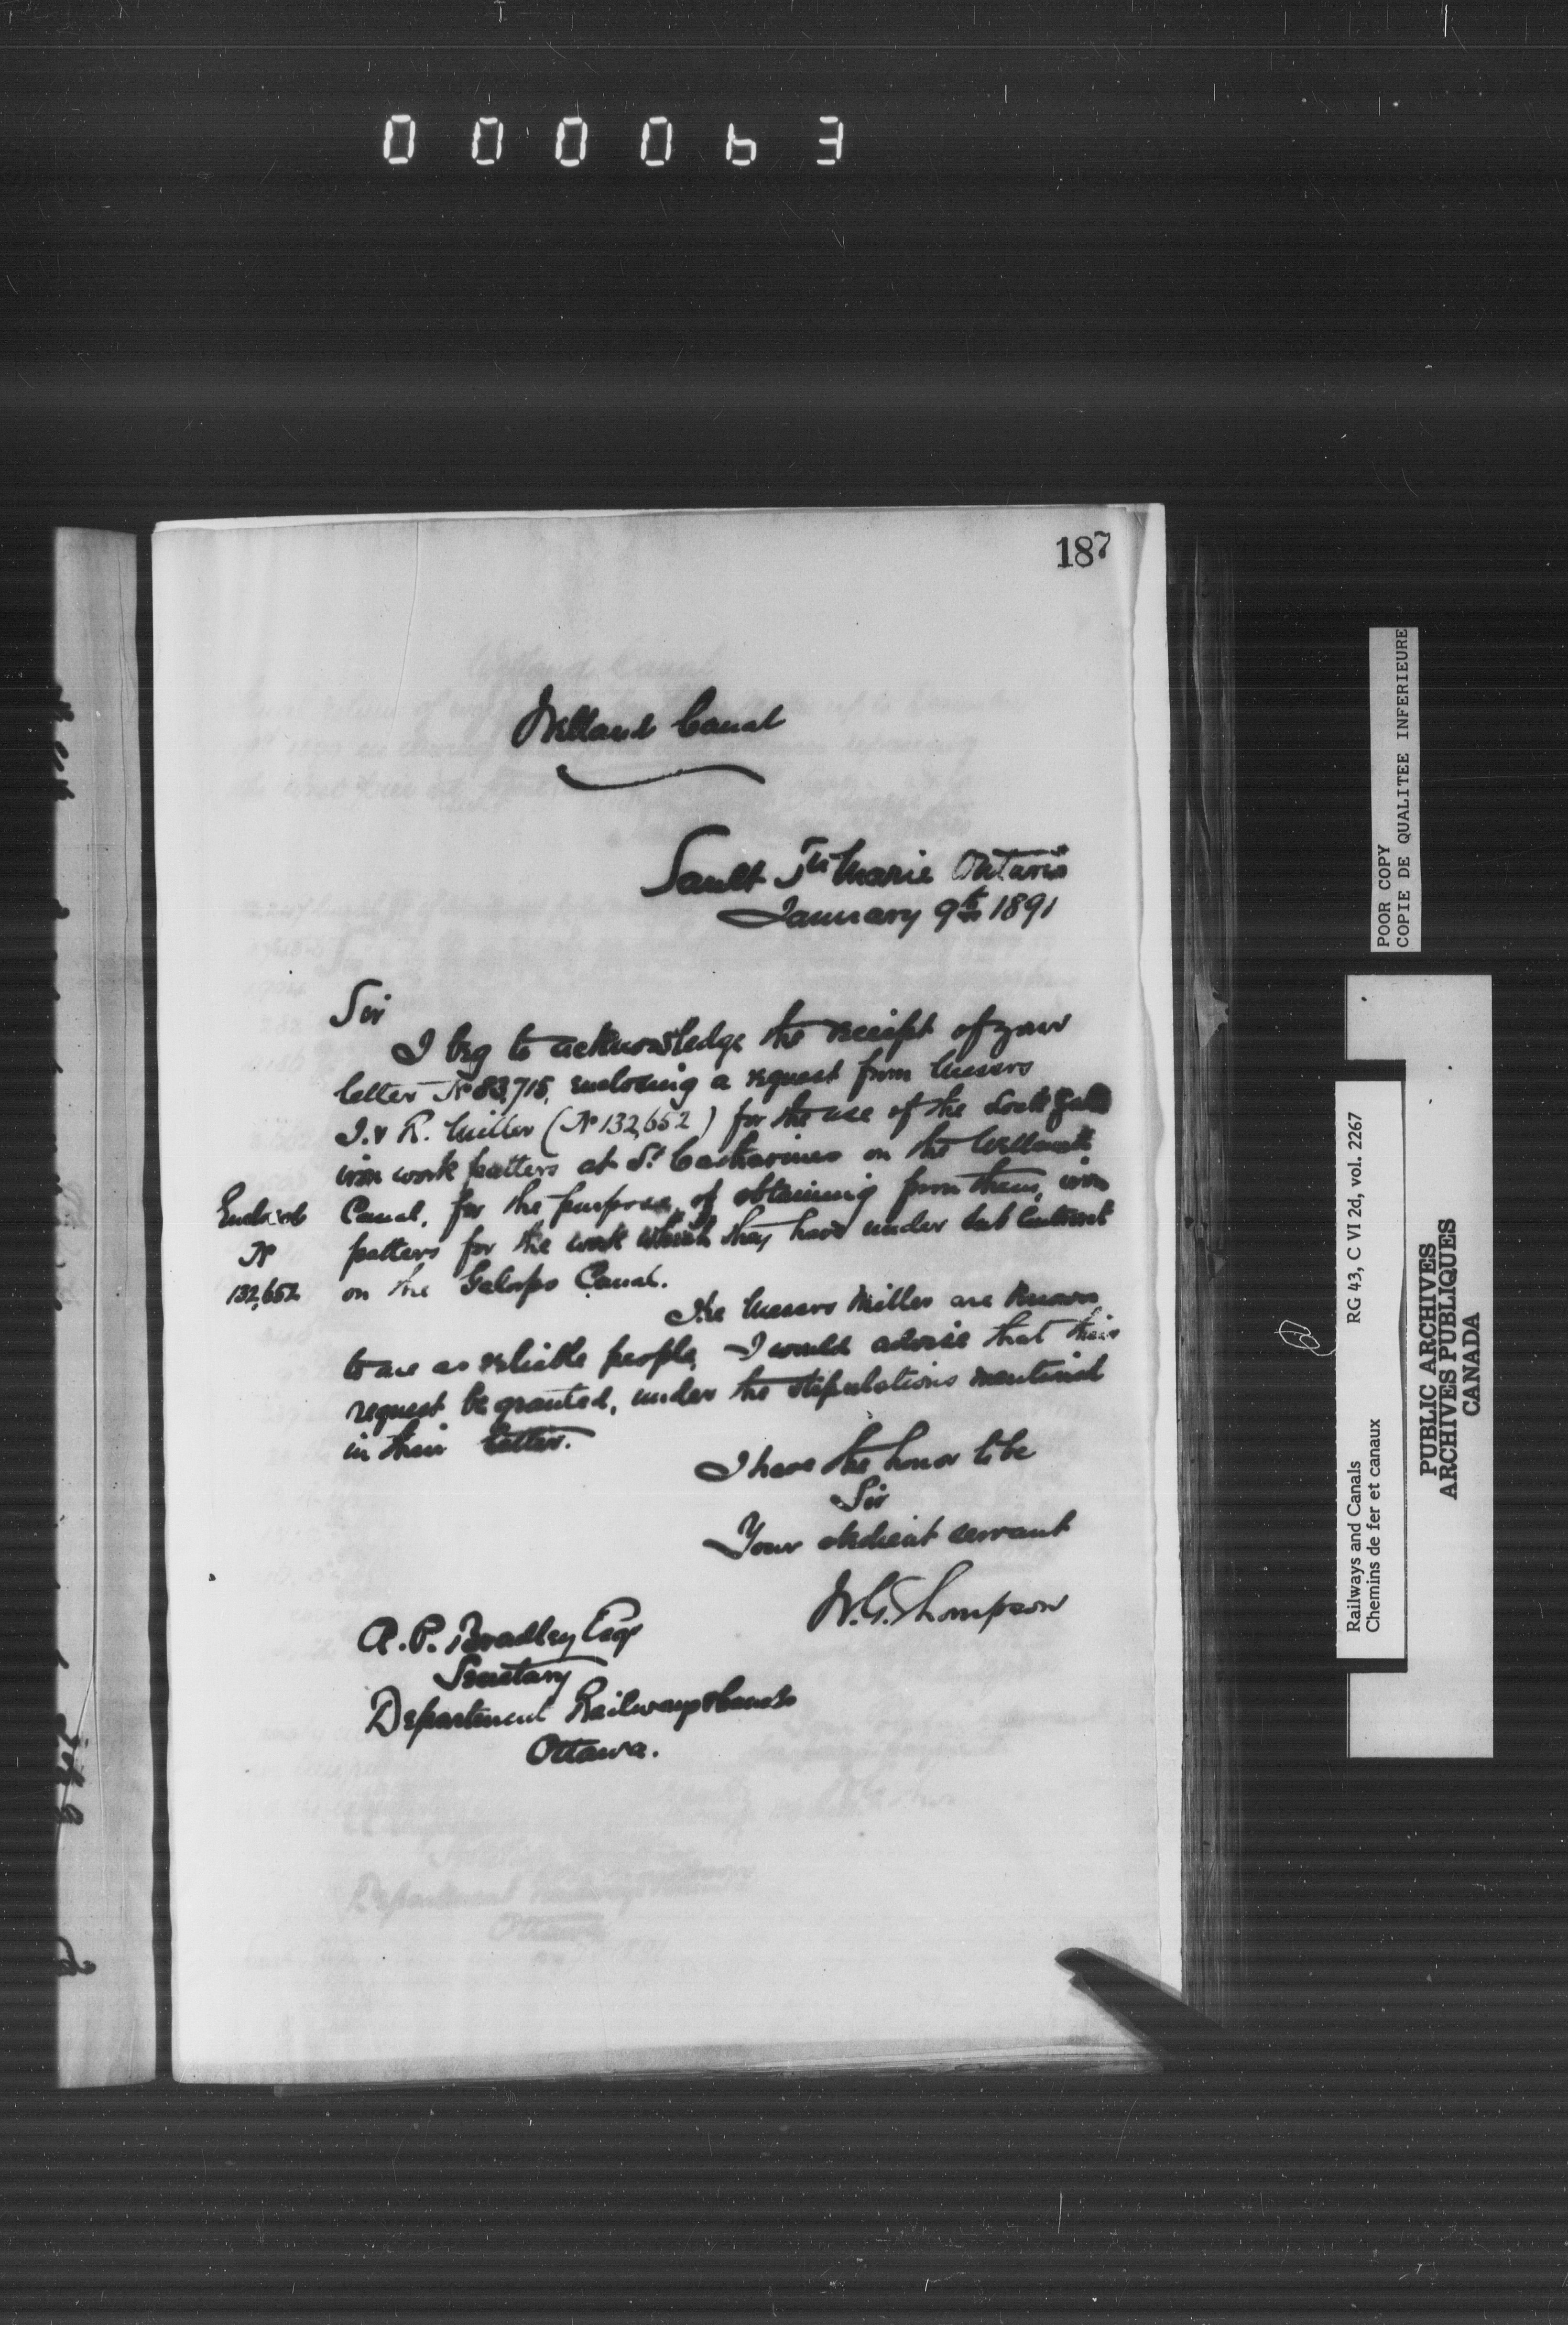 000063
187
Welland Canal
Sault Ste Marie Ontario
January 9th 1891
Sir
I beg to acknowledge the receipt of your
letter No 83,715, enclosing a request from Messrs
J. & R. Miller (No 132,652) for the use of the Lock Gate
iron work patters at St. Catharines on the Welland
Canal, for the purpose, of obtaining from them, iron
patters for the work which they have under sub Contract
on the Galops Canal.
Enclosed
No
132,652
The Messrs Miller are known
to me as reliable people, I would advise that their
request be granted, under the stipulations mentioned
in their letter.
I have the honor to be
Sir
Your obedient servant
W.G. Thompson
A. P. Bradley Esq
Secretary
Department Railways & Canals
Ottawa.
POOR COPY
COPIE DE QUALITEE INFERIEURE
Railways and Canals
Chemins de fer et canaux
RG 43, C VI 2d, vol. 2267
PUBLIC ARCHIVES
ARCHIVES PUBLIQUES
CANADA